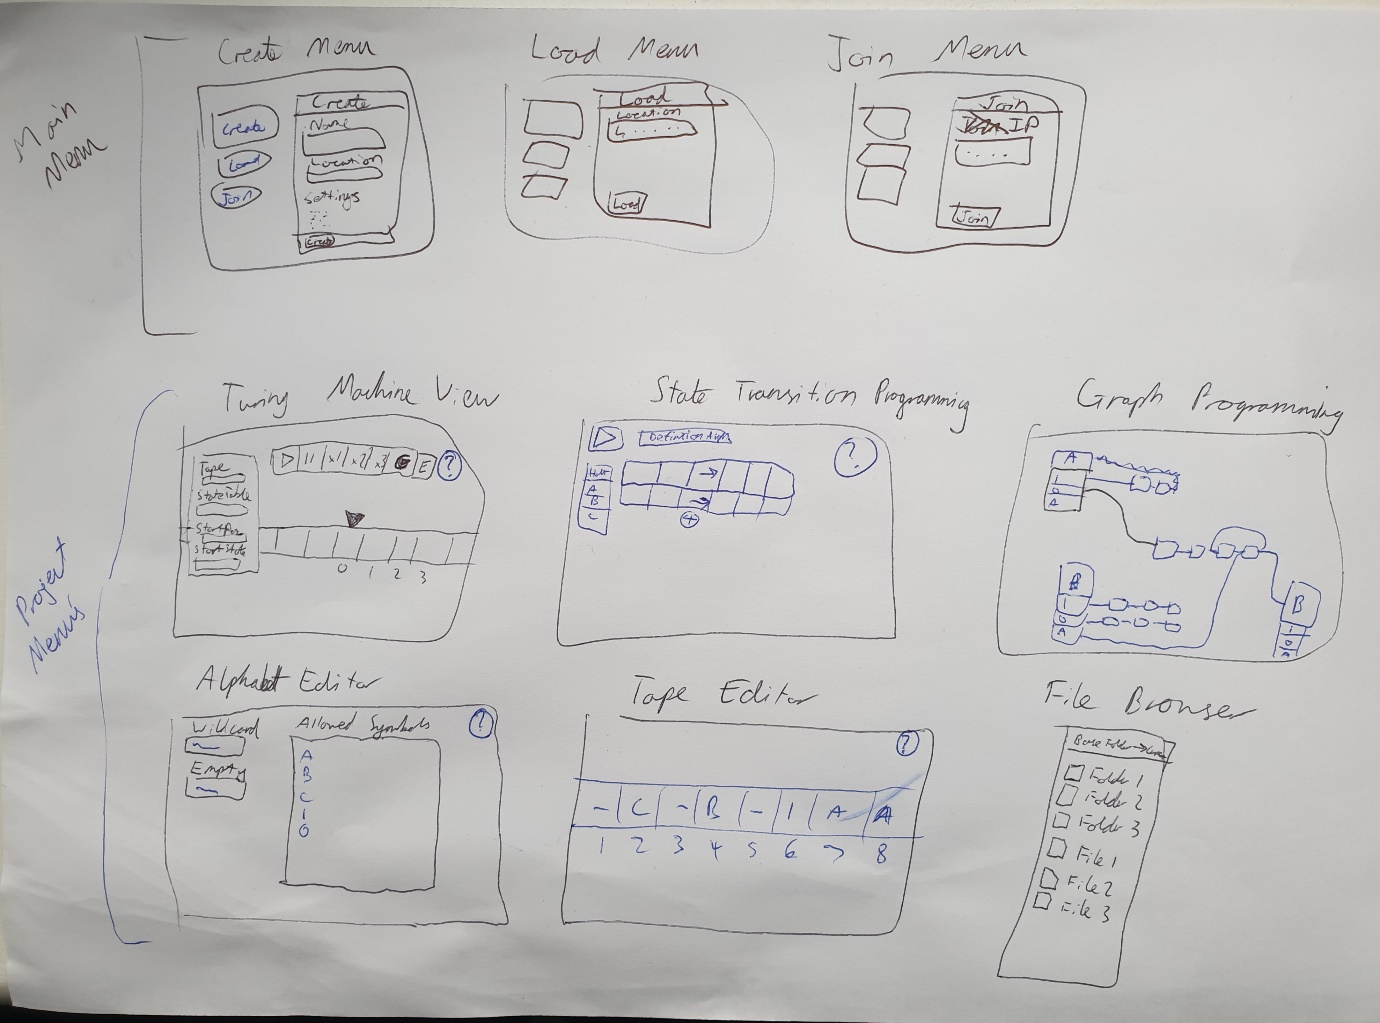 Main Menu
Create Menu
Create
Load
Join
Create
Name
Location
Settings
Create
Load Menu
Load
Location
Load
Join Menu
Join
IP
Join
Project Menus
Turing Machine View
Tape
State Table
Start Pos
Start State
x1 x2 x3 E ?
0 1 2 3
State Transition Programming
?
Halt
A
B
C
Graph Programming
A
1
0
A
B
1
0
A
B
1
0
A
Alphabet Editor
Wildcard
Empty
Allowed Symbols
?
A
B
C
1
0
Tape Editor
?
- C - B - 1 A A
1 2 3 4 5 6 7 8
File Browser
Base Folder →
Folder 1
Folder 2
Folder 3
File 1
File 2
File 3